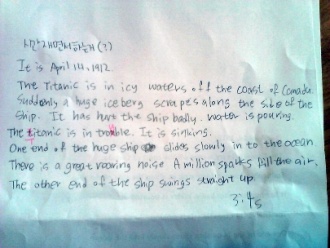 시간재면서하는거 (?)
It is April 14, 1912.
The Titanic is in icy waters off the coast of Canada.
Suddenly a huge iceberg scrapes along the side of the
ship. It has hurt the ship badly. water is pouring.
The titanic is in trouble. It is sinking.
One end of the huge ship slides slowly in to the ocean
There is a great roaring noise. A million sparks fill the air.
The other end of the ship swings straight up.
3:45